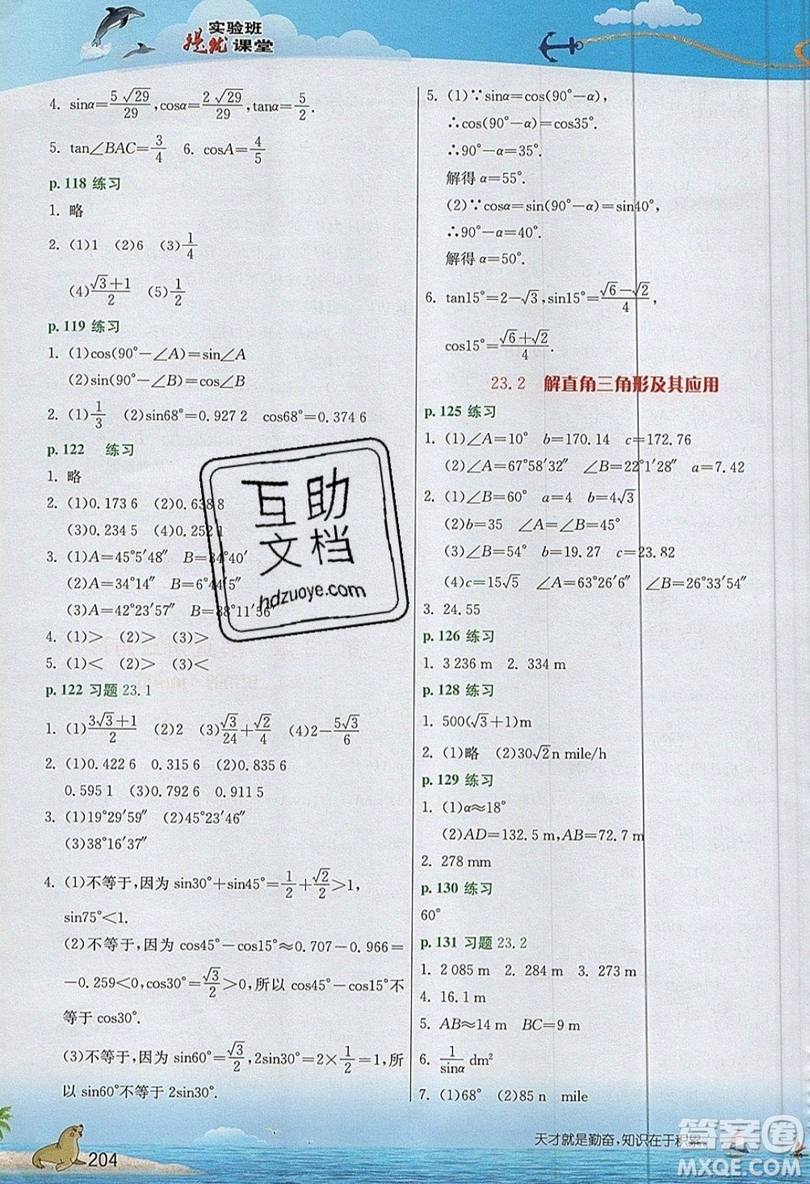 实验班
提优课堂
4. sinα=5√29/29, cosα=2√29/29, tanα=5/2.
5. tan∠BAC=3/4  6. cosA=4/5
p. 118 练习
1. 略
2. (1)1  (2)6  (3)1/4
(4)(√3+1)/2  (5)1/2
p. 119 练习
1. (1)cos(90°-∠A)=sin∠A
(2)sin(90°-∠A)=cos∠A
2. (1)1/3  (2)sin68°=0.927 2  cos68°=0.374 6
p. 122 练习
1. 略
2. (1)0.173 6  (2)0.638 8
(3)0.234 5  (4)0.252 1
3. (1)A=45°5′48″  B=34°40′
(2)A=34°14″  B=6°44′5″
(3)A=42°23′57″  B=88°11′56″
4. (1)>  (2)>  (3)>
5. (1)<  (2)>  (3)<
p. 122 习题 23.1
1. (1)(3√3+1)/2  (2)2  (3)√3/24+√2/4  (4)2-5√3/6
2. (1)0.422 6  0.315 6  (2)0.835 6
0.595 1  (3)0.792 6  0.911 5
3. (1)19°29′59″  (2)45°23′46″
(3)38°16′37″
4. (1)不等于,因为 sin30°+sin45°=1/2+√2/2>1,
sin75°<1.
(2)不等于,因为 cos45°-cos15°≈0.707-0.966=
-0.259<0,cos30°=√3/2>0,所以 cos45°-cos15°不
等于 cos30°.
(3)不等于,因为 sin60°=√3/2, 2sin30°=2×1/2=1,所
以 sin60°不等于 2sin30°.
5. (1)∵sinα=cos(90°-α),
∴cos(90°-α)=cos35°.
∴90°-α=35°.
解得 α=55°.
(2)∵cosα=sin(90°-α)=sin40°,
∴90°-α=40°.
解得 α=50°.
6. tan15°=2-√3, sin15°=(√6-√2)/4,
cos15°=(√6+√2)/4.
23.2 解直角三角形及其应用
p. 125 练习
1. (1)∠A=10°  b=170.14  c=172.76
(2)∠A=67°58′58″  ∠B=22°1′2″  a=7.42
2. (1)∠B=60°  a=4  b=4√3
(2)b=35  ∠A=45°  ∠B=45°
(3)∠B=54°  b=19.27  c=23.82
(4)c=15√5  ∠A=63°26′6″  ∠B=26°33′54″
3. 24.55
p. 126 练习
1. 3 236 m
p. 128 练习
1. 500(√3+1)m
2. (1)略  (2)30√2 n mile/h
p. 129 练习
1. (1)α≈18°
(2)AD=132.5 m, AB=72.7 m
2. 278 mm
p. 130 练习
60°
p. 131 习题 23.2
1. 2 085 m  2. 284 m  3. 273 m
4. 16.1 m
5. AB≈14 m  BC=9 m
6. 1/sinα dm²
7. (1)68°  (2)85 n mile
互助
文档
hdzuoye.com
天才就是勤奋,知识在于积累
204
答案圈
MXQE.COM